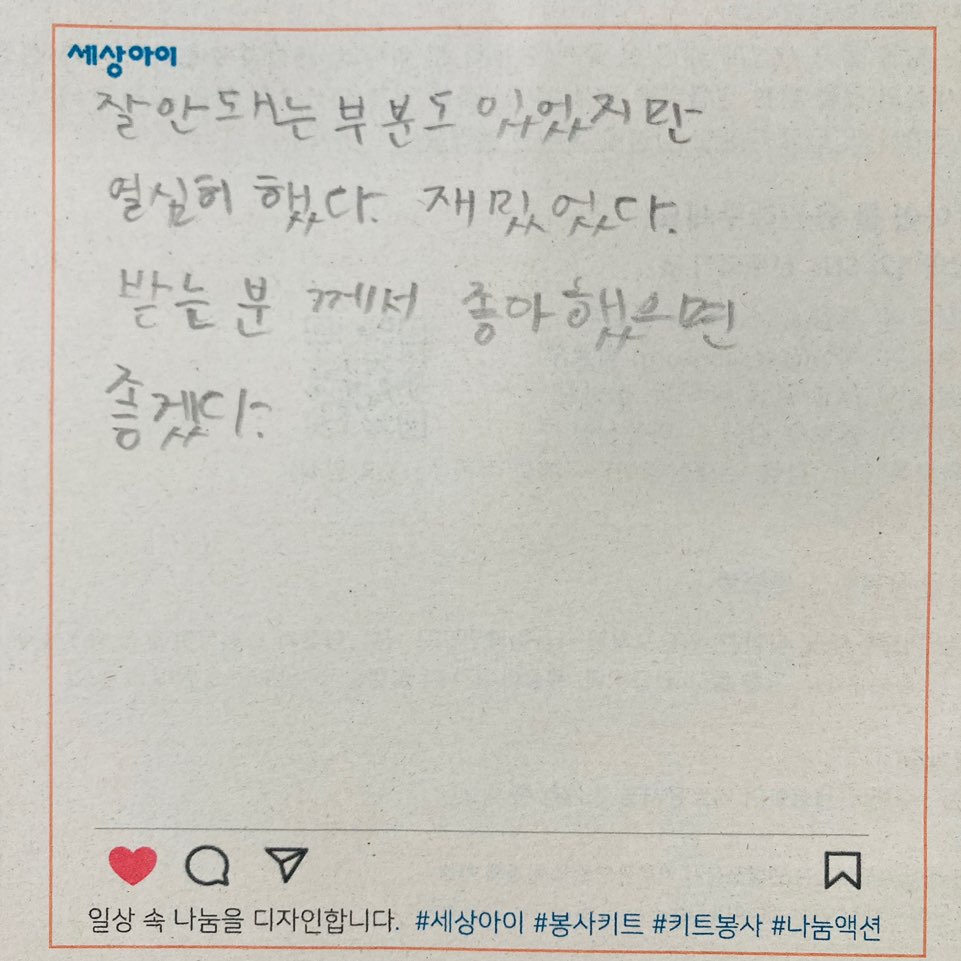 세상아이
잘 안 돼는 부분도 있었지만
열심히 했다. 재밌었다.
받는 분 께서 좋아했으면
좋겠다.
일상 속 나눔을 디자인합니다. #세상아이 #봉사키트 #키트봉사 #나눔액션